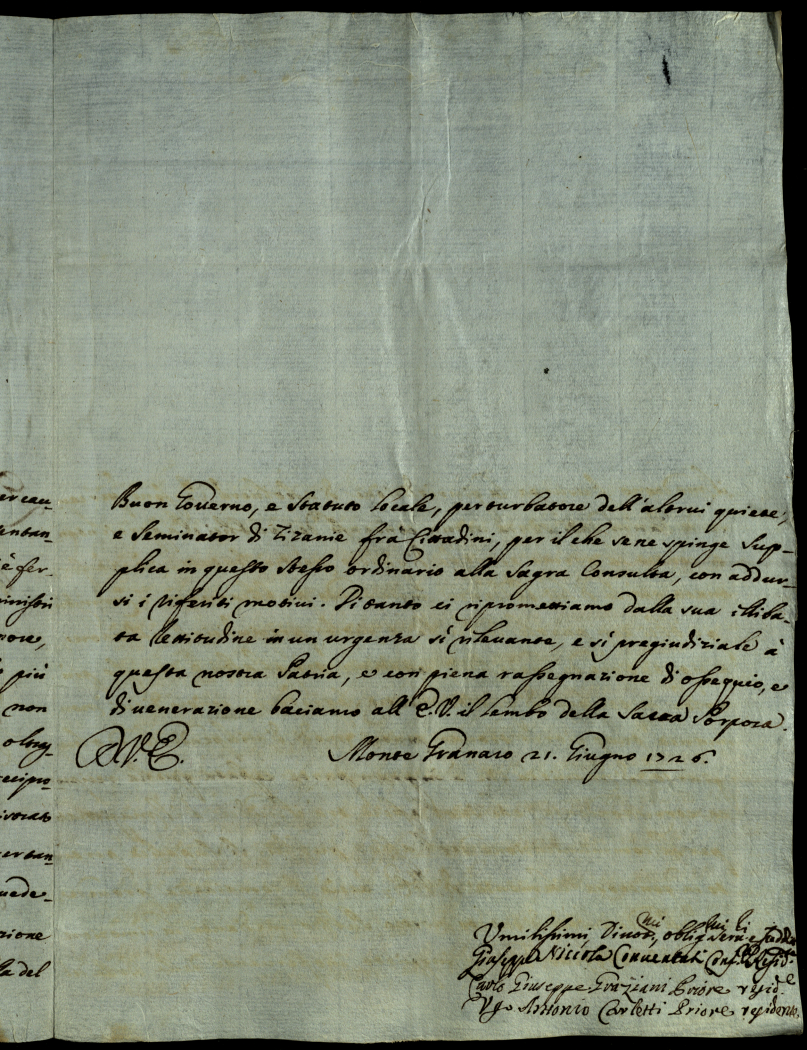 er cau-
entan-
è fer-
ministri
more,
più
non
oltag-
ecipro-
ivocato
ertan-
uede-
zione
la del
Buon Governo, e Statuto Locale, perturbatore dell'altrui quiete,
e Seminator di Zizanie frà Cittadini, per il che se ne spinge sup-
plica in questo stesso ordinario alla Sagra Consulta, con addur-
si i riferiti motivi. Di tanto ci ripromettiamo dalla sua illiba-
ta Rettitudine in un urgenza sì rilevante, e sì pregiudiziale à
questa nostra Patria, e con piena rassegnazione di ossequio, e
di venerazione baciamo all'E.V. il Lembo della Sacra Porpora.
D.V.E. Monte Granaro 21. Giugno 1726.
Umilissimi, Divot.mi, oblig.mi Ser.i
Giuseppe Niccola Conventati Conf. Resid.e
Carlo Giuseppe Graziani Priore resid.e
Ugo Antonio Carletti Priore residente